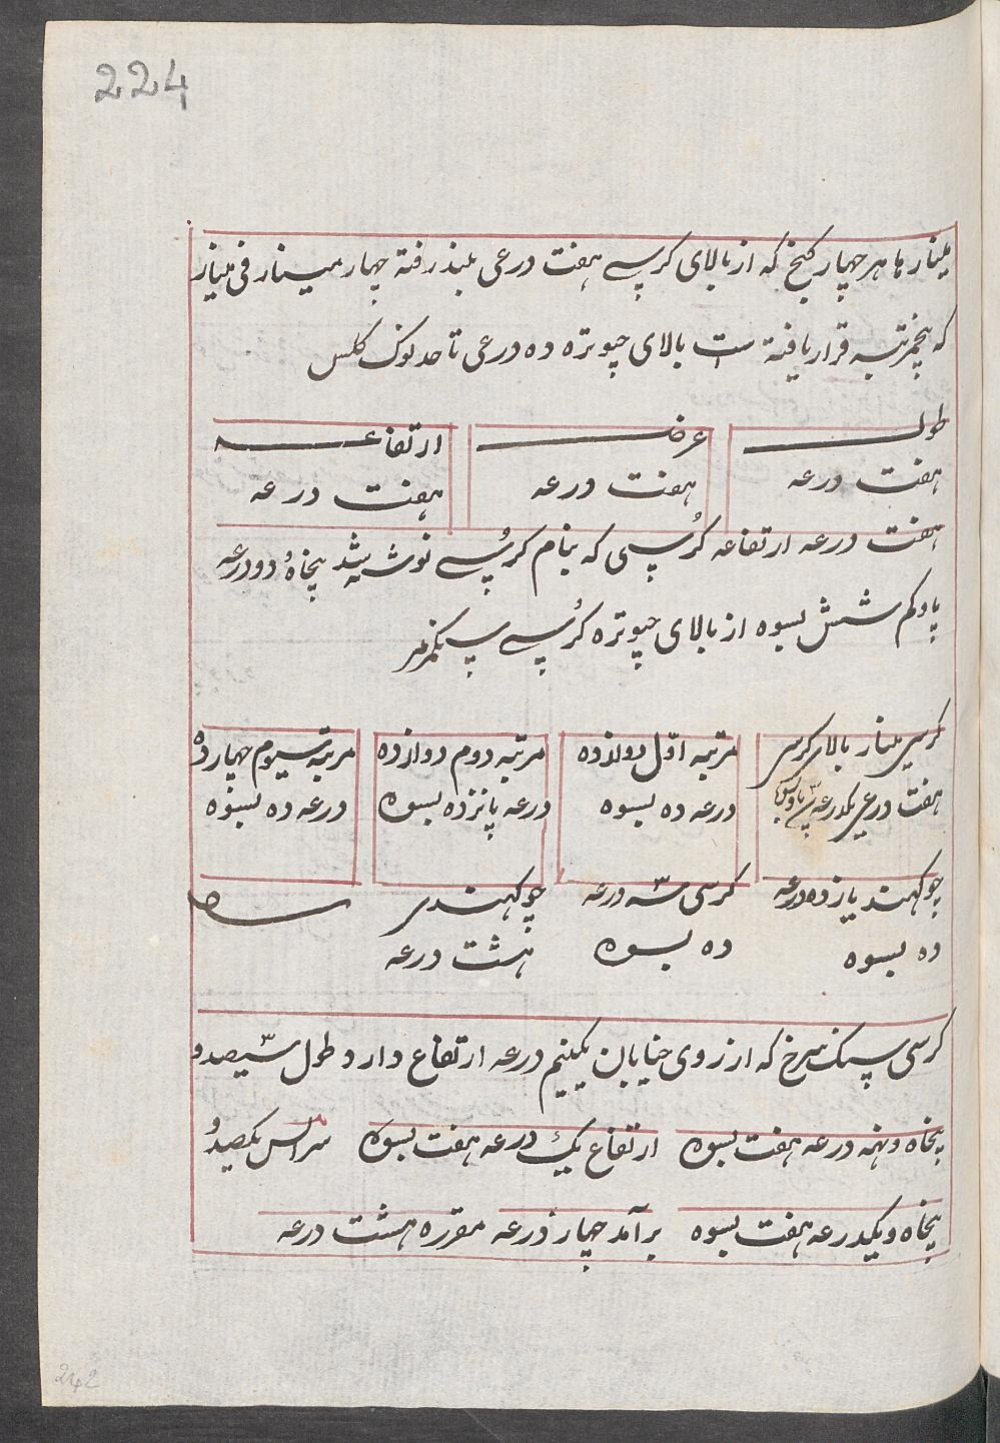 224
مینارها هر چهار کنج که از بالای کرسی هفت درعی بلند رفته چهار مینار فی مینار
که پنجمرتبه قرار یافته است بالای چبوتره ده درعی تا حد نوک کلس
طول عرض ارتفاع
هفت درعه هفت درعه هفت درعه
هفت درعه ارتفاعه کُرسی که بنام کرُسی نوشته شد پنجاهُ دو درعه
پاو کم شش بسوه از بالای چبوتره کُرسی سنگمرمر
کرسی مینار بالای کرسی مرتبه اوّل دوازده مرتبه دوم دوازده مرتبه سیوم چهارده
هفت درعی یکدرعه درعه ده بسوه درعه پانزده بسوه درعه ده بسوه
چوکهندی یازده درعه کرسی سه درعه چوکهندی
ده بسوه ده بسوه هشت درعه
کرسی سنک سرخ که از روی خیابان یکنیم درعه ارتفاع دارد طول سیصد و
پنجاه و نهه درعه هفت بسوه ارتفاع یک درعه هفت بسوه سراسر یکصد و
پنجاه و یکدرعه هفت بسوه برآمد چهار درعه مقرره هشت درعه
242